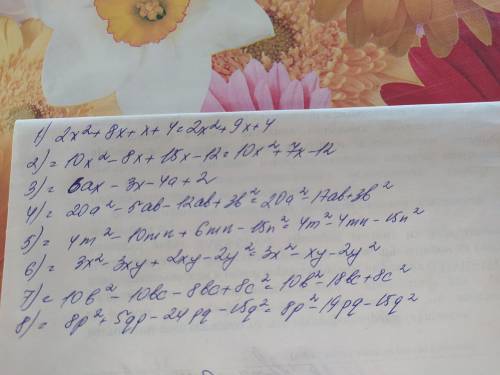 1) 2x²+8x+x+4=2x²+9x+4
2)= 10x²-8x+15x-12=10x²+7x-12
3)= 6ax-3x-4a+2
4)= 20a²-5ab-12ab+3b²=20a²-17ab+3b²
5)= 4m²-10mn+6mn-15n²=4m²-4mn-15n²
6)= 3x²-3xy+2xy-2y²=3x²-xy-2y²
7)= 10b²-10bc-8bc+8c²=10b²-18bc+8c²
8)= 8p²+5qp-24pq-15q²=8p²-19pq-15q²